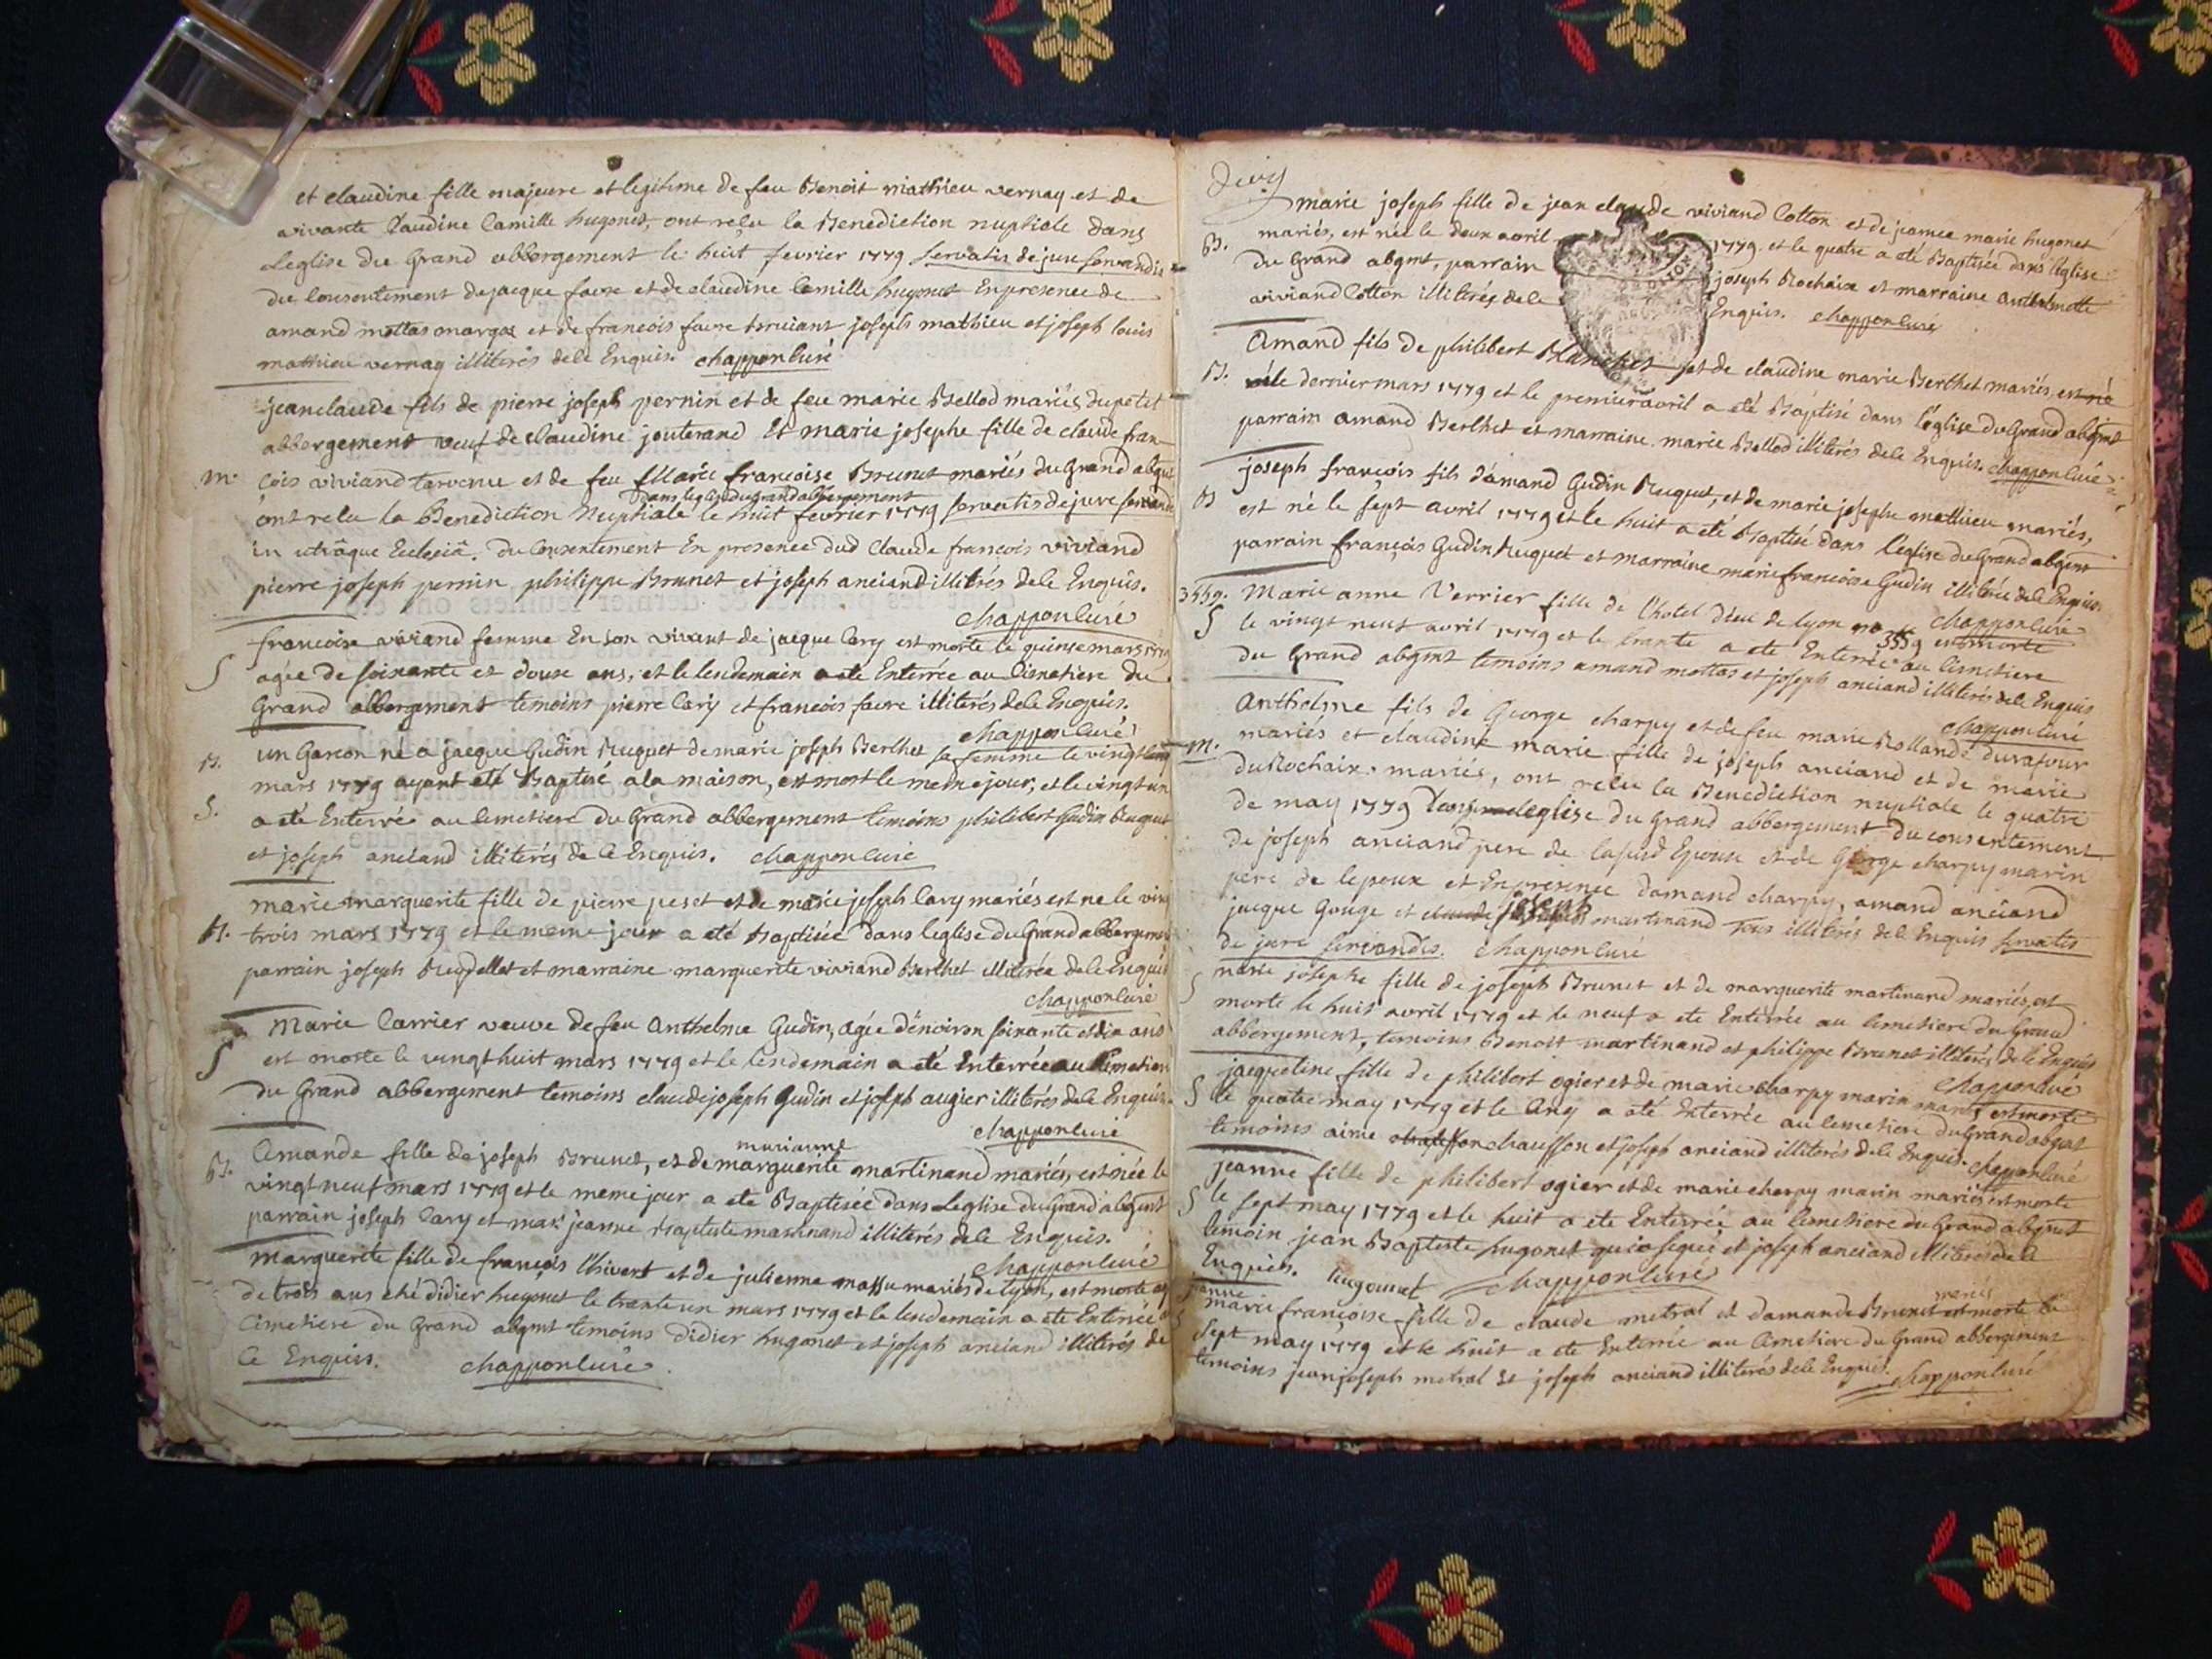 et claudine fille majeure et legitime de feu Benoit mathieu vernay et de
vivante Claudine Camille hugonet, ont reçu la Benediction nuptiale dans
Leglise du Grand abbergement le huit fevrier 1779 servatis de jure servandis
du consentement de jacque favre et de claudine Camille hugonet En presence de
amand mottas margaz et de francois favre joseph mathieu et joseph louis
mathieu vernay illiterés de ce Enquis. chappon Curé
jean claude fils de pierre joseph pernin et de feu marie Bellod mariés du petit
abbergement veuf de claudine jouterand Et marie josephe fille de claude fran-
m. cois viviand tervenu et de feu Marie francoise Brunet mariés du Grand abgmt
dans leglise du grand abbergement
ont reçu la Benediction Nuptiale le huit fevrier 1779 servatis de jure servandis
in utrâque Ecclesiâ. du Consentement En presence dud Claude francois viviand
pierre joseph pernin philippe Brunet et joseph anciand illitérés de ce Enquis.
chappon Curé
francoise viviand femme En son vivant de jacque Cary est morte le quinse mars 1779
S agée de soixante et douse ans, et le lendemain a eté Enterrée au Cimetiere du
Grand abbergement temoins pierre Cary et francois favre illiterés de ce Enquis.
chappon Curé
B. un Garcon né a jacque Gudin Ruquet de marie joseph Berthet sa femme le vingt
mars 1779 ayant eté Baptisé a la maison, est mort le meme jour, et le vingt un
S. a eté Enterré au Cemetiere du Grand abbergement temoins philibert Gudin Ruquet
et joseph anciand illiterés de ce Enquis. chappon Curé
marie marguerite fille de pierre peset et de marie joseph Cary mariés est né le vingt
B. trois mars 1779 et le meme jour a eté Baptisée dans leglise du Grand abbergement
parrain joseph et marraine marguerite viviand Berthet illiterée de ce Enquis
chappon Curé
Marie Carrier veuve de feu Anthelme Gudin, agée d'environ soixante et dix ans
S est morte le vingt huit mars 1779 et le lendemain a eté Enterrée au Cimetiere
du Grand abbergement temoins claude joseph Gudin et joseph augier illiterés de ce Enquis.
chappon Curé
marianne
B. Amande fille de joseph Brunet, et de marguerite martinand mariés, est née le
vingt neuf mars 1779 et le meme jour a eté Baptisée dans Leglise du Grand abgmt
parrain joseph Cary et mar. jeanne Baptiste martinand illiterés de ce Enquis.
chappon Curé
marguerite fille de françois Chivert et de julienne massu mariés de Lyon, est morte ag
de trois ans ché didier hugonet le trente un mars 1779 et le lendemain a eté Enterrée
Cimetiere du Grand abgmt temoins didier hugonet et joseph anciand illiterés de
Ce Enquis. chappon Curé.
marie joseph fille de jean claude viviand Cotton et de jeanne marie hugonet
B. mariés, est née le deux avril 1779. et le quatre a eté Baptisée dans leglise
du Grand abgmt, parrain joseph Rochaix et marraine Anthelmette
viviand Cotton illiterés de ce Enquis. chappon Curé
Amand fils de philibert Blanchet et de claudine marie Berthet mariés, est né
B. le dernier mars 1779 et le premier avril a eté Baptisé dans l'eglise du Grand abgmt
parrain amand Berthet et marraine marie Bellod illiterés de ce Enquis. chappon Curé
joseph françois fils d'amand Gudin Ruquet, et de marie josephe mathieu mariés,
B est né le sept avril 1779 et le huit a eté Baptisé dans l'eglise du Grand abgmt
parrain françois Gudin Ruquet et marraine marie francoise Gudin illiterée de ce Enquis
chappon Curé
3559. Marie anne Verrier fille de l'hotel dieu de Lyon no 3559 est morte
S le vingt neuf avril 1779 et le trante a eté Enterrée au Cimetiere
du Grand abgmt temoins amand mottas et joseph anciand illiterés de ce Enquis
chappon Curé
Anthelme fils de George charpy et de feu marie Rolland durafour
m. mariés et claudine marie fille de joseph anciand et de marie
du Rochaix mariés, ont reçu la Benediction nuptiale le quatre
de may 1779 dans leglise du Grand abbergement du consentement
de joseph anciand pere de Epouse et de George charpy marin
pere de lepoux et En presence damand charpy, amand anciand
jacque Gouge et claude joseph martinand Tous illiterés de ce Enquis servatis
de jure servandis. chappon Curé
S marie josephe fille de joseph Brunet et de marguerite martinand mariés, est
morte le huit avril 1779 et le neuf a eté Enterrée au Cemetiere du Grand
abbergement, temoins Benoit martinand et philippe Brunet illiterés de ce Enquis
chappon Curé
jacqueline fille de philibert ogier et de marie charpy marin mariés est morte
S le quatre may 1779 et le cinq a eté Enterrée au Cemetiere du Grand abgmt
temoins aimé chausson et joseph anciand illiterés de ce Enquis. chappon Curé
jeanne fille de philibert ogier et de marie cherpy marin mariés est morte
S le sept may 1779 et le huit a eté Enterrée au Cemetiere du Grand abgmt
temoin jean Baptiste hugonet qui a signé et joseph anciand illiteré de ce
Enquis. hugonnet chappon Curé
jeanne
mariés
marie françoise fille de claude metral et damande Brunet est morte le
S sept may 1779 et le huit a eté Enterrée au Cimetiere du Grand abbergement
temoins jean joseph metral et joseph anciand illiterés de ce Enquis. chappon Curé